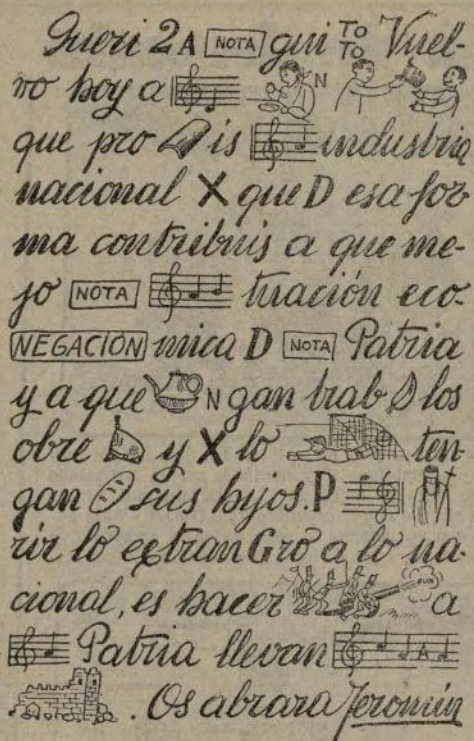 Queri 2 A NOTA gui TO TO Vuel-
vo hoy a N
que pro is industria
nacional X que D esa for
ma contribuis a que me-
jo NOTA tuación eco-
NEGACIÓN mica D NOTA Patria
y a que N gan trab los
obre y X lo ten-
gan sus hijos. P
rir lo extran G ro a lo na-
cional, es hacer PUN a
Patria llevan A
. Os abrara Jeromín